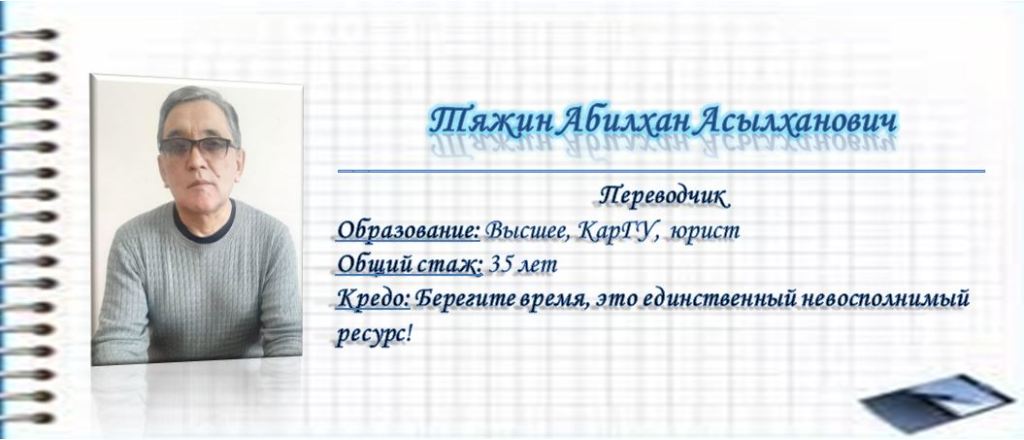 Тяжин Абилхан Асылханович
Переводчик
Образование: Высшее, КарГУ, юрист
Общий стаж: 35 лет
Кредо: Берегите время, это единственный невосполнимый
ресурс!